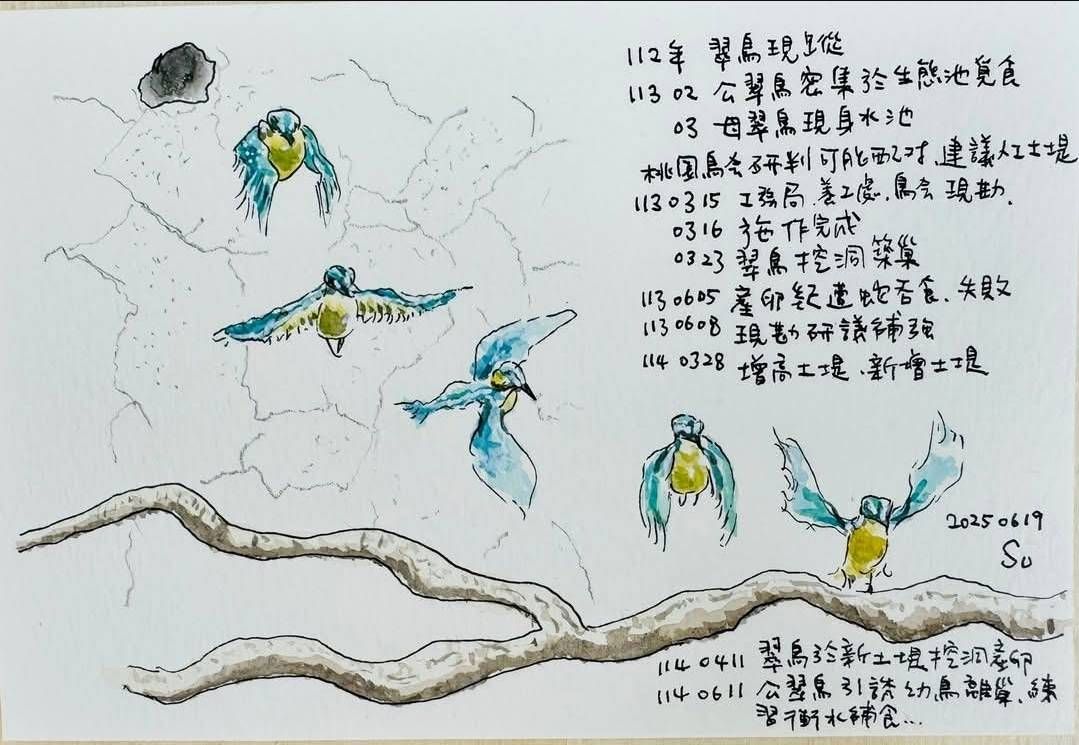 112年 翠鳥現蹤
113 02 公翠鳥密集於生態池覓食
03 母翠鳥現身水池
桃園鳥會研判可能配对、建議人工土堤
113 0315 工務局、養工處、鳥会現勘、
0316 施作完成
0323 翠鳥挖洞築巢
113 0605 產卵 遭蛇吞食、失敗
113 0608 現勘研議補強
114 0328 增高土堤、新增土堤
2025 0619
Su
114 0411 翠鳥於新土堤挖洞產卵
114 0611 公翠鳥引誘幼鳥離巢、練
習衝水補食...